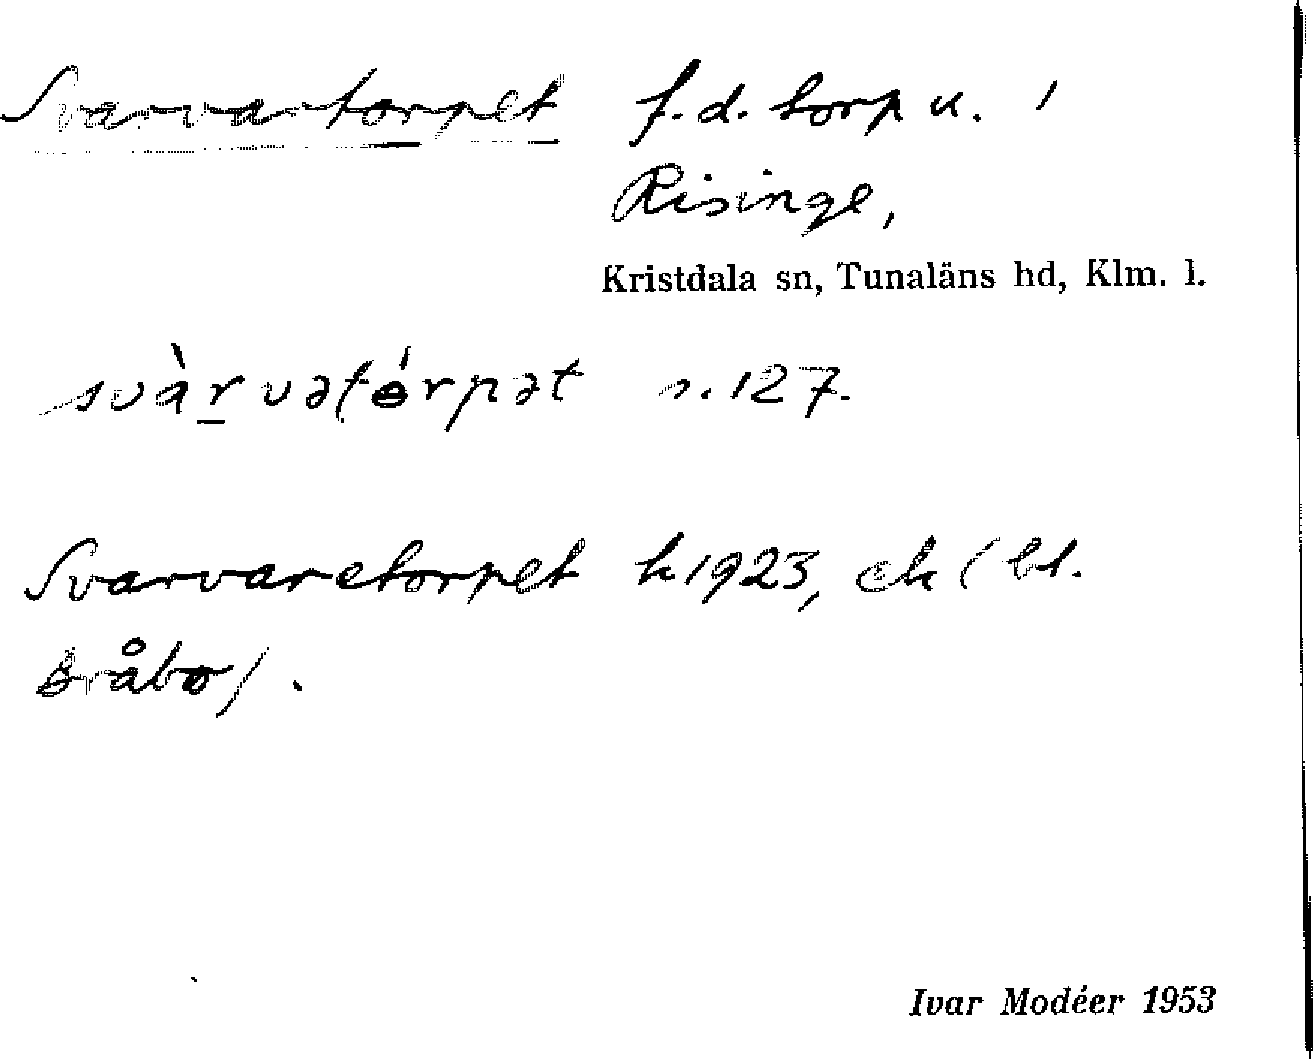 Svarvartorpet f.d. torp u. /
Risinge,
Kristdala sn, Tunaläns hd, Klm. l.
svàrvətórpət s. 127.
Svarvaretorpet k 1923, ek (bl.
Bråbo).
Ivar Modéer 1953